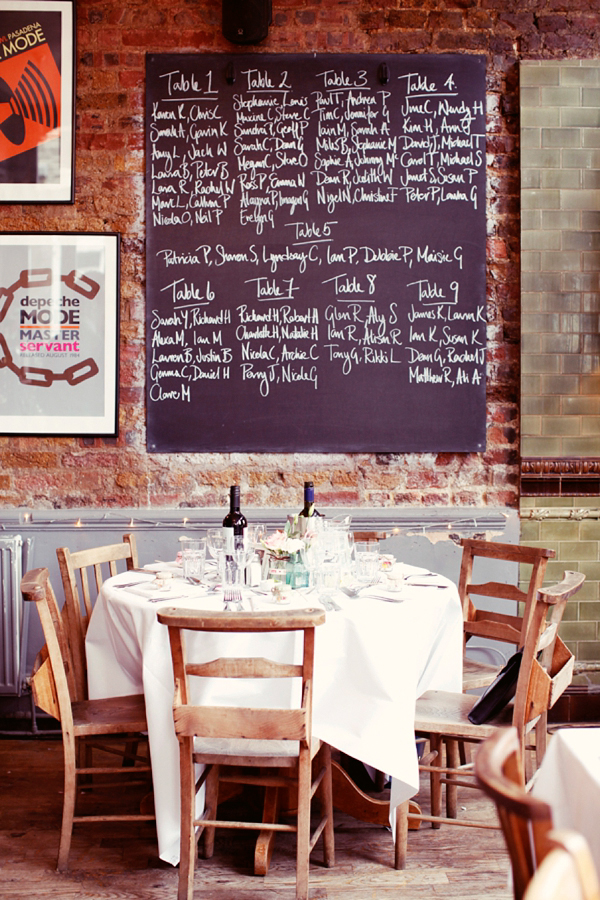 PASADENA
MODE
depeche
MODE
MASTER
servant
RELEASED AUGUST 1984
Table 1
Karen K, Chris C
Sarah A, Gavin K
Amy L, Jack W
Laura B, Peter B
Lara R, Rachel W
Marc L, Callum P
Nicola O, Neil P
Table 2
Stephanie, Louis
Maxine C, Steve C
Sandra P, Geoff P
Sarah C, Dom G
Megan C, Steve O
Ross P, Emma W
Alagra P, Imogen G
Evelyn G
Table 3
Paul T, Andrea P
Tim C, Jennifer G
Iain M, Sarah A
Miles B, Stephanie M
Sophie A, Johnny M
Dean R, Judith W
Nigel N, Christine F
Table 4
June C, Wendy H
Kim H, Ann J
Daniel J, Michael T
Carol T, Michael S
Janet S, Susan P
Peter P, Laura G
Table 5
Patricia P, Sharon S, Lyndsay C, Ian P, Debbie P, Maisie G
Table 6
Sarah Y, Richard H
Alexa M, Ian M
Lauren B, Justin B
Gemma C, Daniel H
Clare M
Table 7
Richard H, Robert A
Chantelle H, Natalie H
Nicola C, Archie C
Perry J, Nicole G
Table 8
Glen R, Aly S
Ian R, Alison R
Tony G, Rikki L
Table 9
James K, Lauren K
Iain K, Susan K
Dean G, Rachel J
Matthew R, Ali A